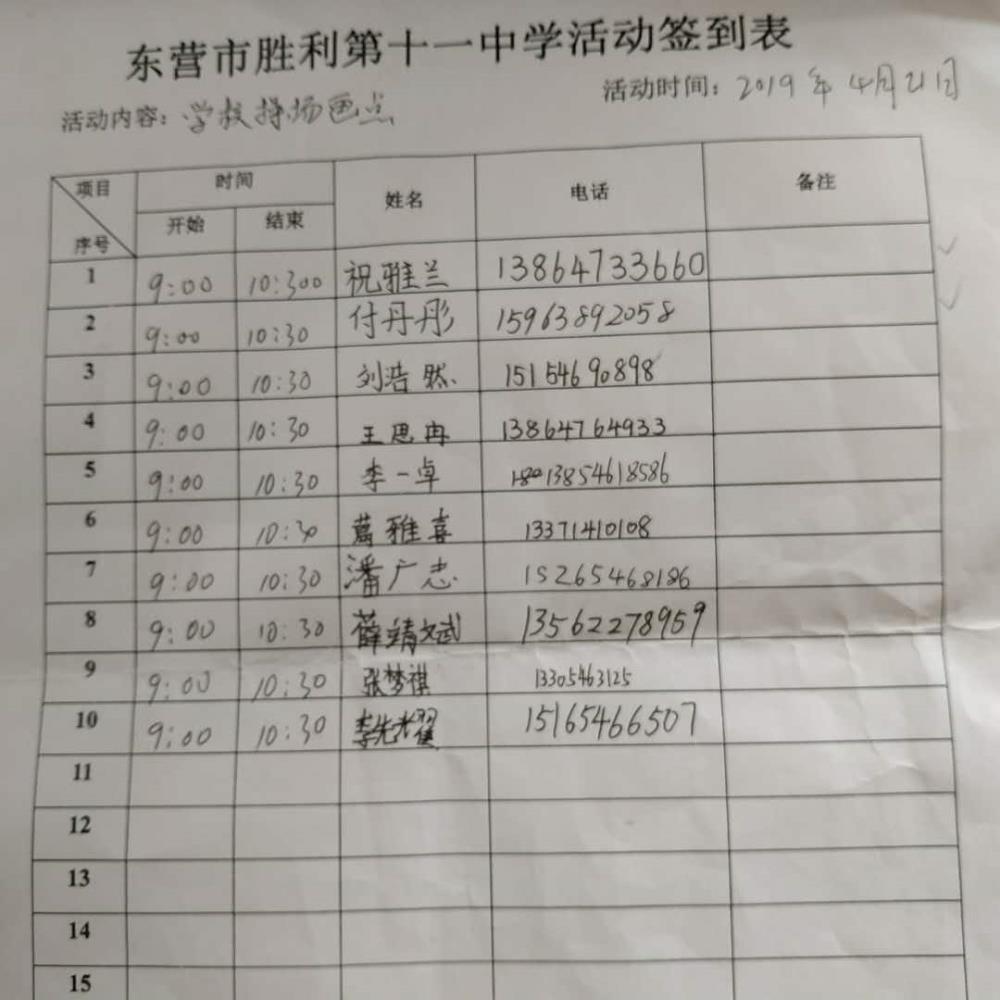 东营市胜利第十一中学活动签到表
活动内容：学校操场画点 活动时间：2019年4月21日
项目 时间 姓名 电话 备注
序号 开始 结束
1 9:00 10:300 祝雅兰 13864733660
2 9:00 10:30 付丹彤 15963892058
3 9:00 10:30 刘浩然 15154690898
4 9:00 10:30 王思冉 13864764933
5 9:00 10:30 李一卓 13854618586
6 9:00 10:30 葛雅喜 13371410108
7 9:00 10:30 潘广志 15265468186
8 9:00 10:30 薛靖斌 13562278959
9 9:00 10:30 张梦祺 13305463125
10 9:00 10:30 李光耀 15165466507
11
12
13
14
15